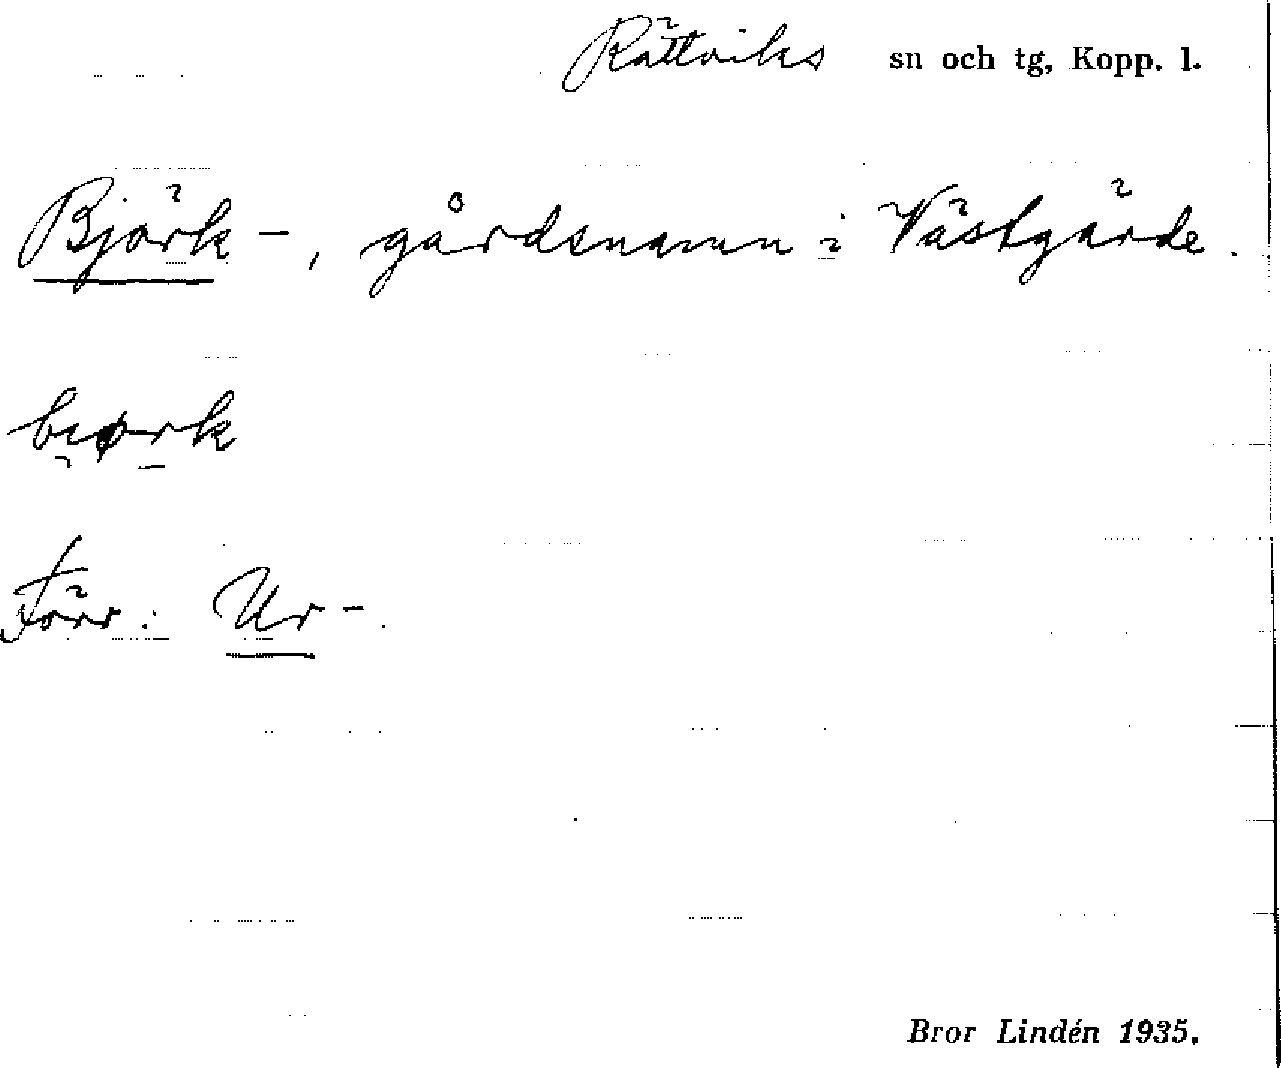 Rättviks sn och tg, Kopp. l.
Björk-, gårdsnamn i Västgärde.
biørk
Förr: Ur-.
Bror Lindén 1935.